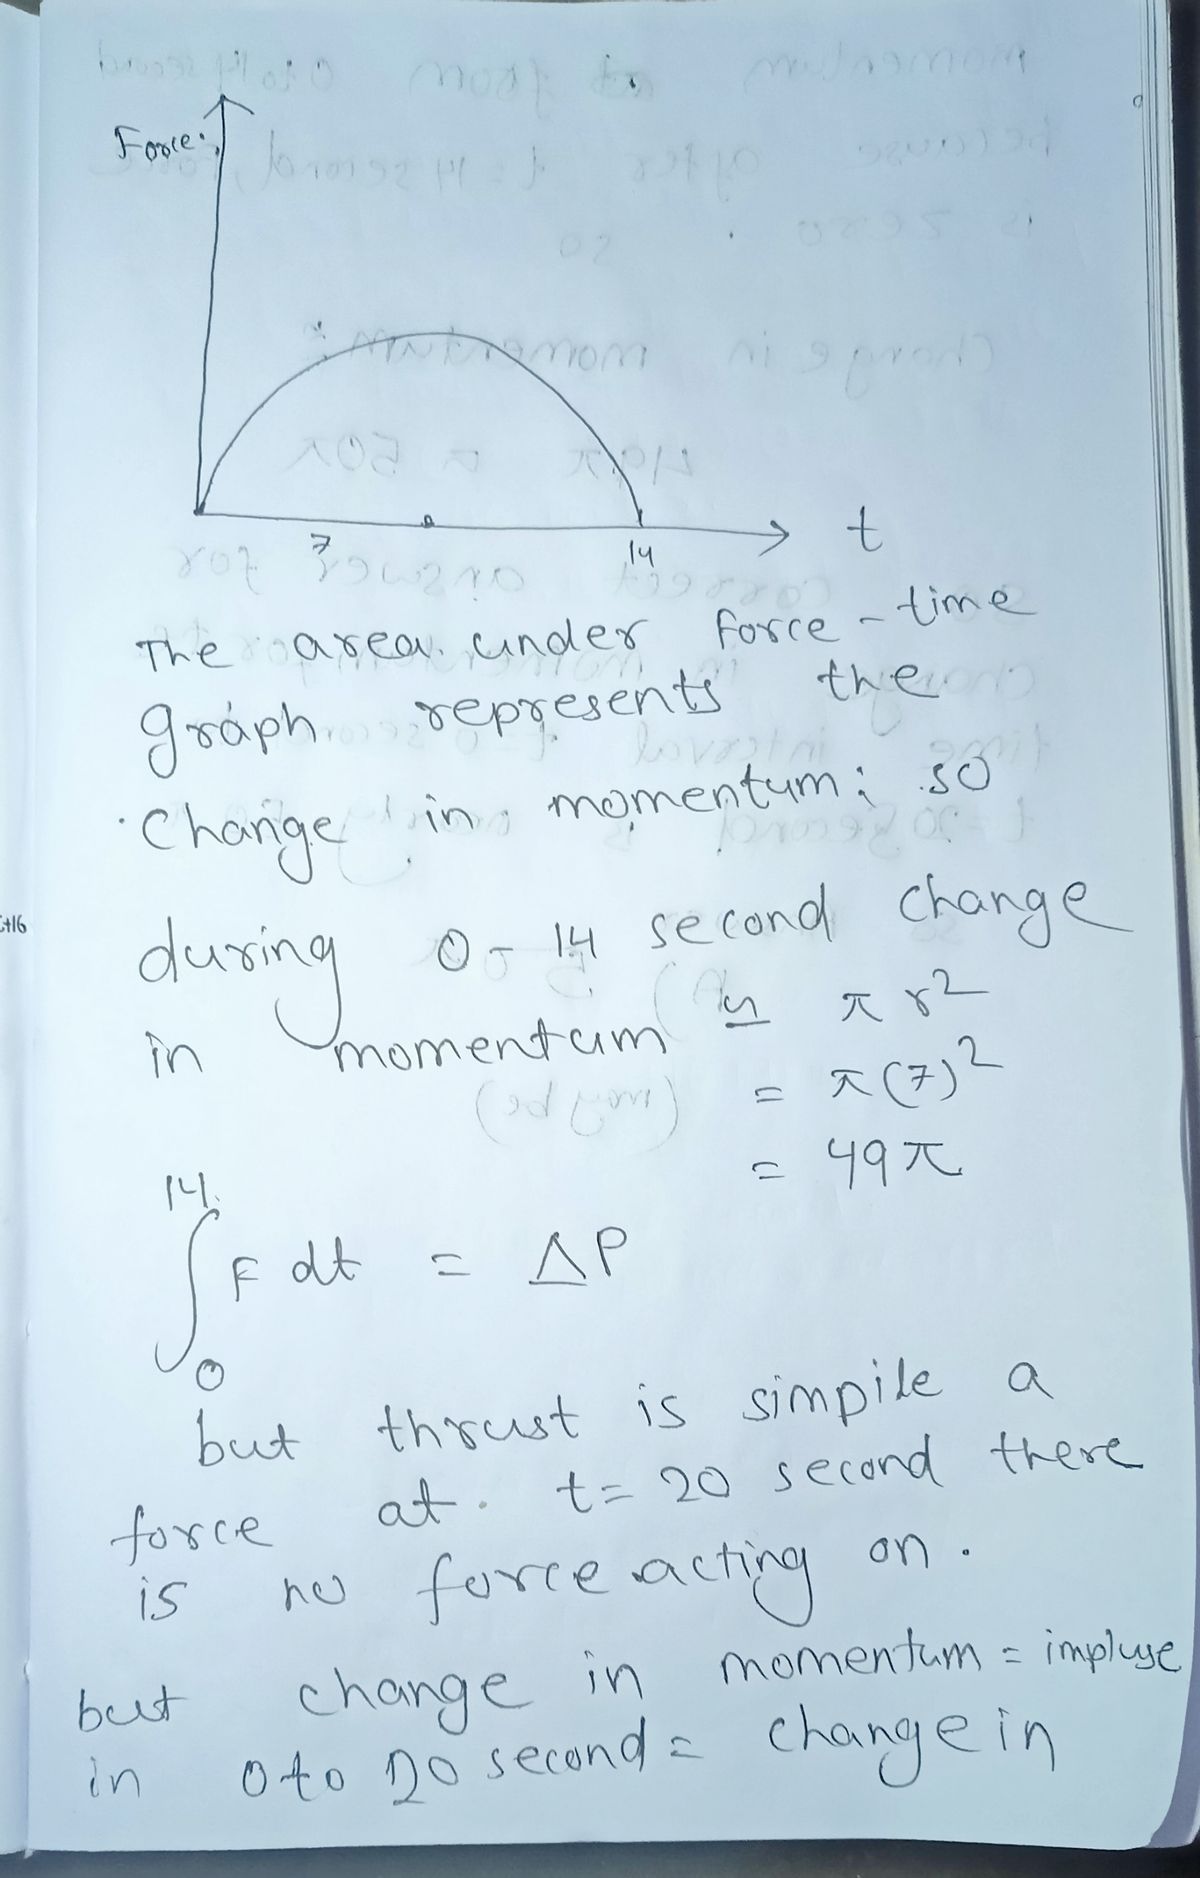 Force
t
7
14
The area under force-time
graph represents the
change in momentum; so
during 0-14 second change
in momentum = π r²
= π(7)²
= 49π
14
∫ F dt = ΔP
0
but thrust is simpile a
force at t=20 second there
is no force acting on.
but change in momentum = impluse
in 0 to 20 second = change in